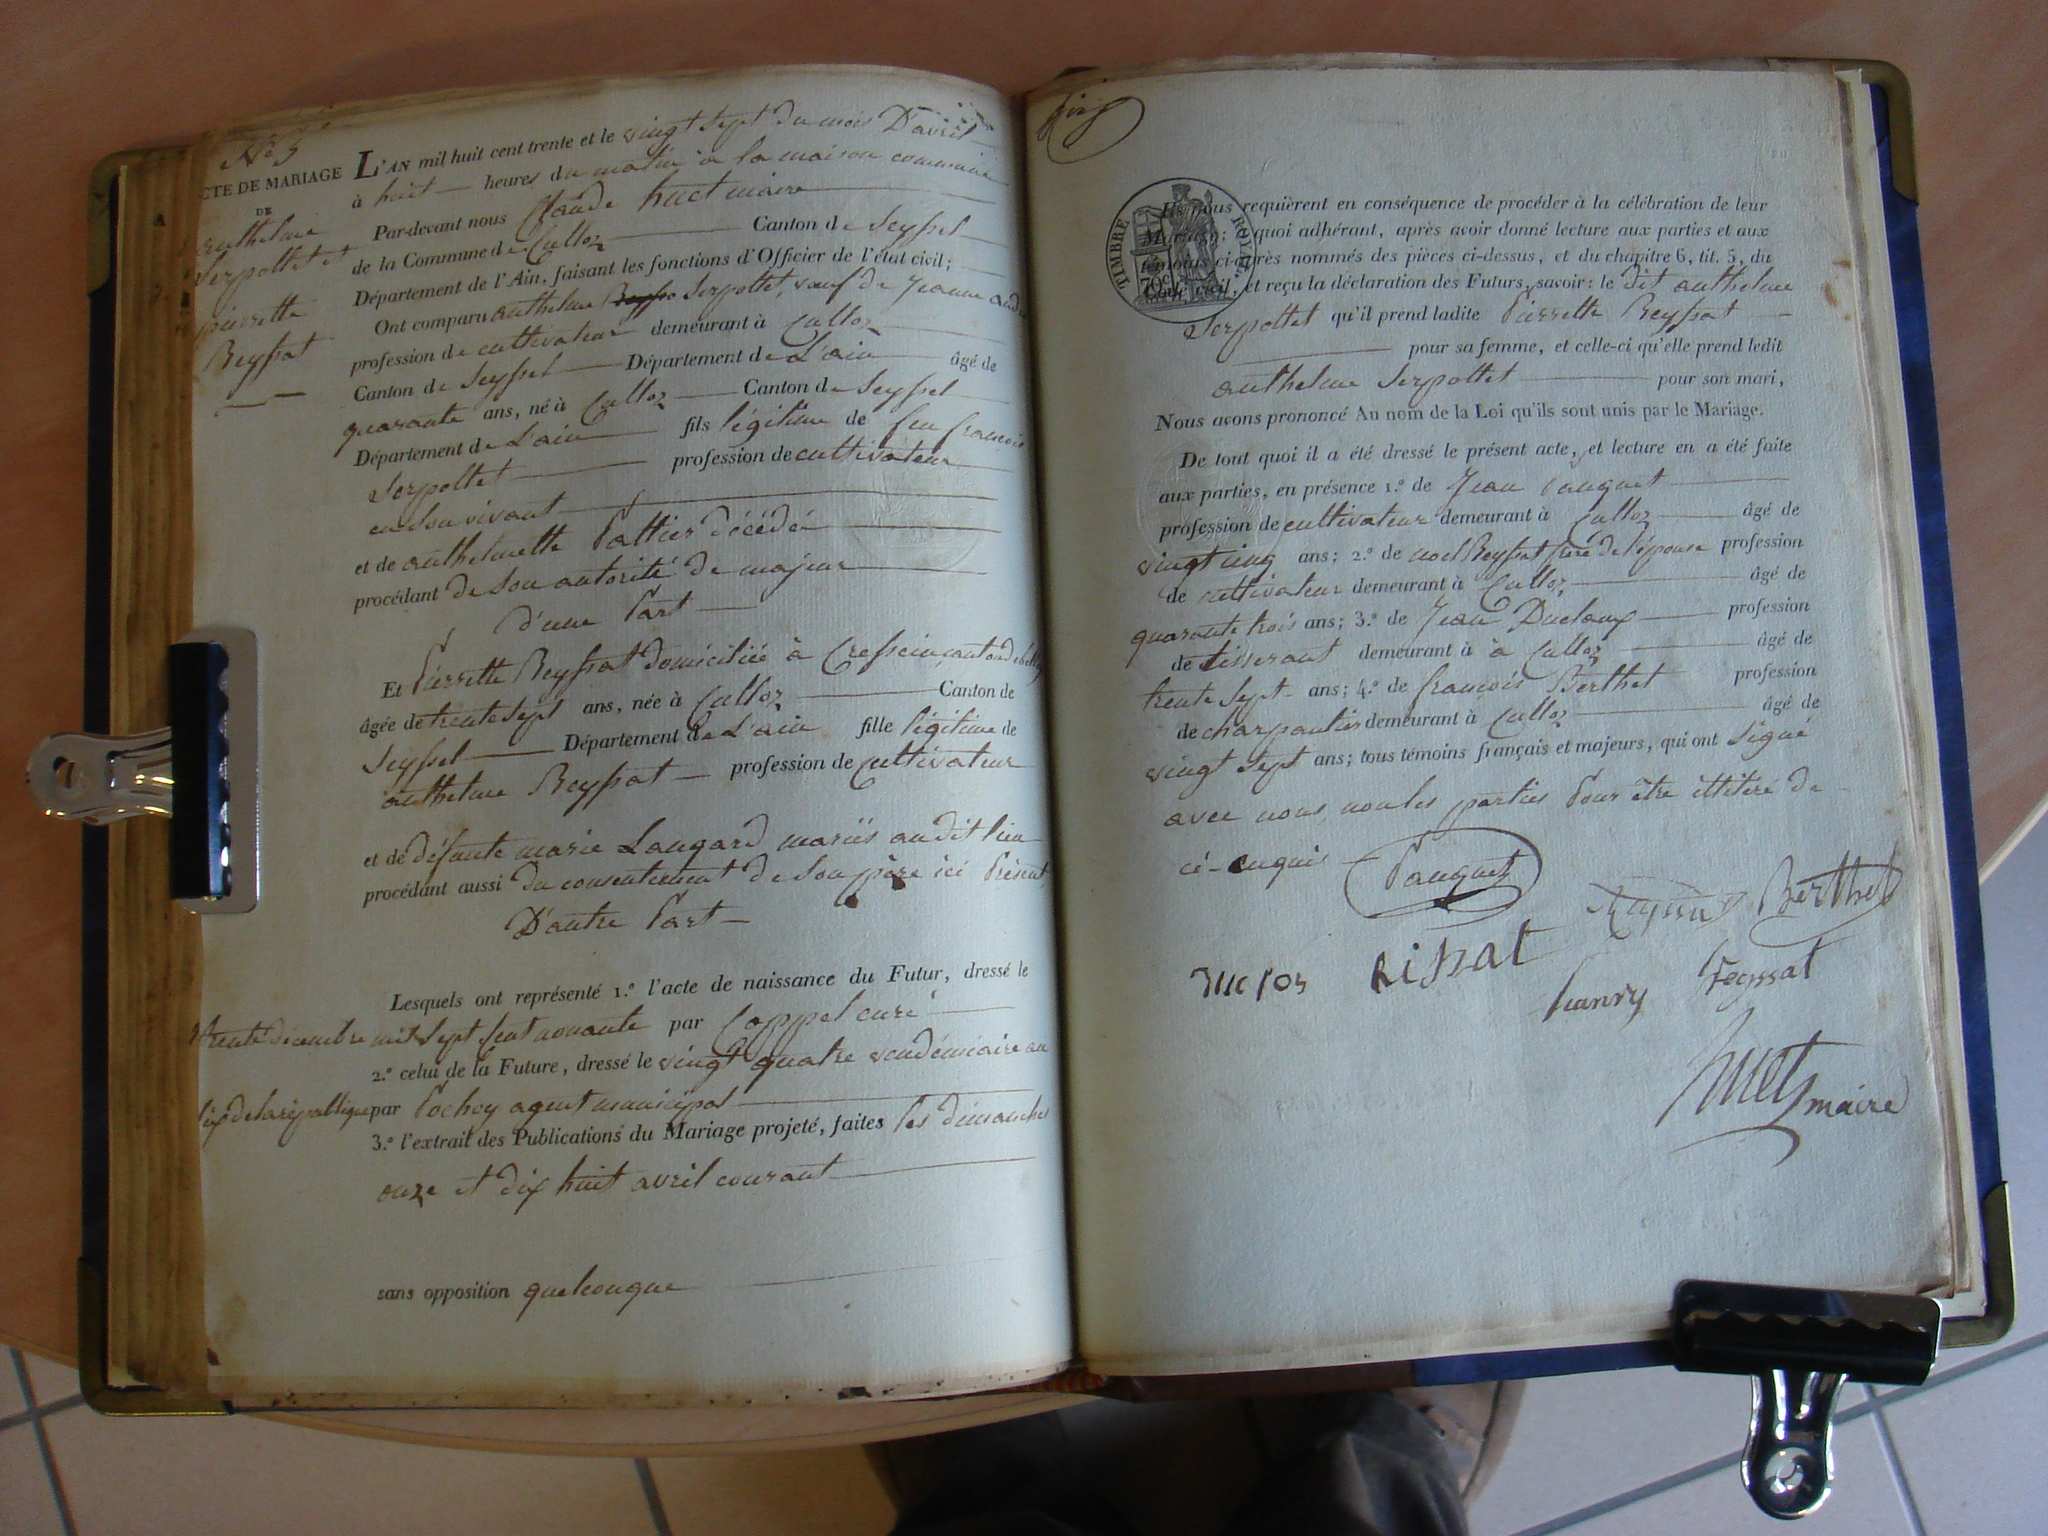 N.o 5
ACTE DE MARIAGE
DE
anthelme
Serpollet et
pierrette
Reyssat
L'AN mil huit cent trente et le vingt sept du mois D'avril
à huit heures du matin à la maison commune
Par-devant nous Claude huet maire
de la Commune de Culloz Canton de Seyssel
Département de l'Ain, faisant les fonctions d'Officier de l'état civil;
Ont comparu anthelme Serpollet, veuf de Jeanne andré
profession de cultivateur demeurant à Culloz
Canton de Seyssel Département de L'ain âgé de
quarante ans, né à Culloz Canton de Seyssel
Département de L'ain fils légitime de feu françois
Serpollet profession de cultivateur
en son vivant
et de anthelmette Pattier décédée
procédant de son autorité de majeur
d'une Part
Et Pierrette Reyssat domiciliée à Cressein canton de belley
âgée de trente sept ans, née à Culloz Canton de
Seyssel Département de L'ain fille légitime de
anthelme Reyssat profession de cultivateur
et de défunte marie Laugard mariés au dit lieu
procédant aussi du consentement de son père ici Présent,
D'autre Part
Lesquels ont représenté 1.o l'acte de naissance du Futur, dressé le
trente décembre mil sept cent nonante par Coppel curé
2.o celui de la Future, dressé le vingt quatre vendémiaire an
dix de la république par Pochoy agent municipal
3.o l'extrait des Publications du Mariage projeté, faites les dimanches
onze et dix huit avril courant
sans opposition quelconque
TIMBRE ROYAL
70c
Ils nous requièrent en conséquence de procéder à la célébration de leur
Mariage; à quoi adhérant, après avoir donné lecture aux parties et aux
témoins ci-après nommés des pièces ci-dessus, et du chapitre 6, tit. 5, du
Code civil, et reçu la déclaration des Futurs, savoir: le dit anthelme
Serpollet qu'il prend ladite Pierrette Reyssat
pour sa femme, et celle-ci qu'elle prend ledit
anthelme Serpollet pour son mari,
Nous avons prononcé Au nom de la Loi qu'ils sont unis par le Mariage.
De tout quoi il a été dressé le présent acte, et lecture en a été faite
aux parties, en présence 1.o de Jean Pauguet
profession de cultivateur demeurant à Culloz âgé de
vingt cinq ans; 2.o de noel Reyssat frère de l'épouse profession
de cultivateur demeurant à Culloz âgé de
quarante trois ans; 3.o de Jean Ducloux profession
de tisserant demeurant à à Culloz âgé de
trente sept ans; 4.o de françois Berthet profession
de charpantier demeurant à Culloz âgé de
vingt sept ans; tous témoins français et majeurs, qui ont signé
avec nous, non les parties Pour être illiteré de
ce enquis Pauguet
Berthet
Rissat
huet maire